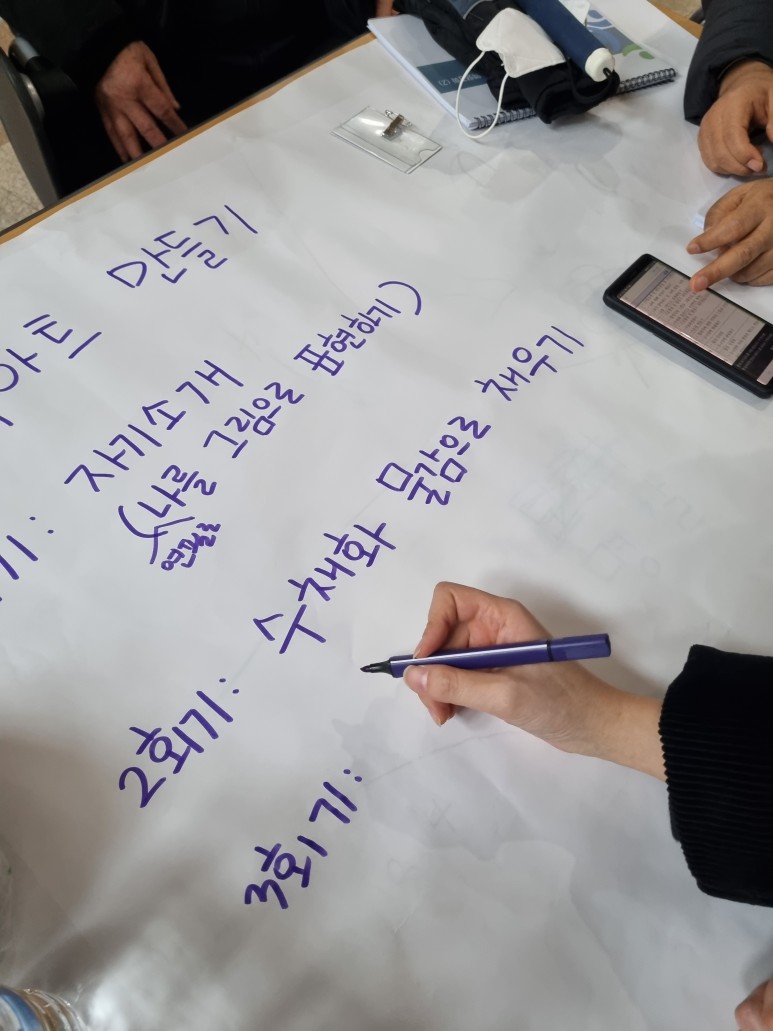 아트 만들기
기: 자기소개
(나를 그림으로 표현하기)
연필로
2회기: 수채화 물감으로 채우기
3회기: